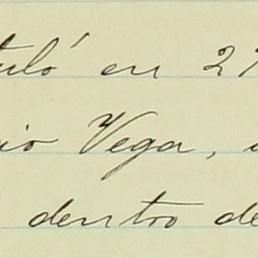 tuló en 27
io Vega,
dentro de